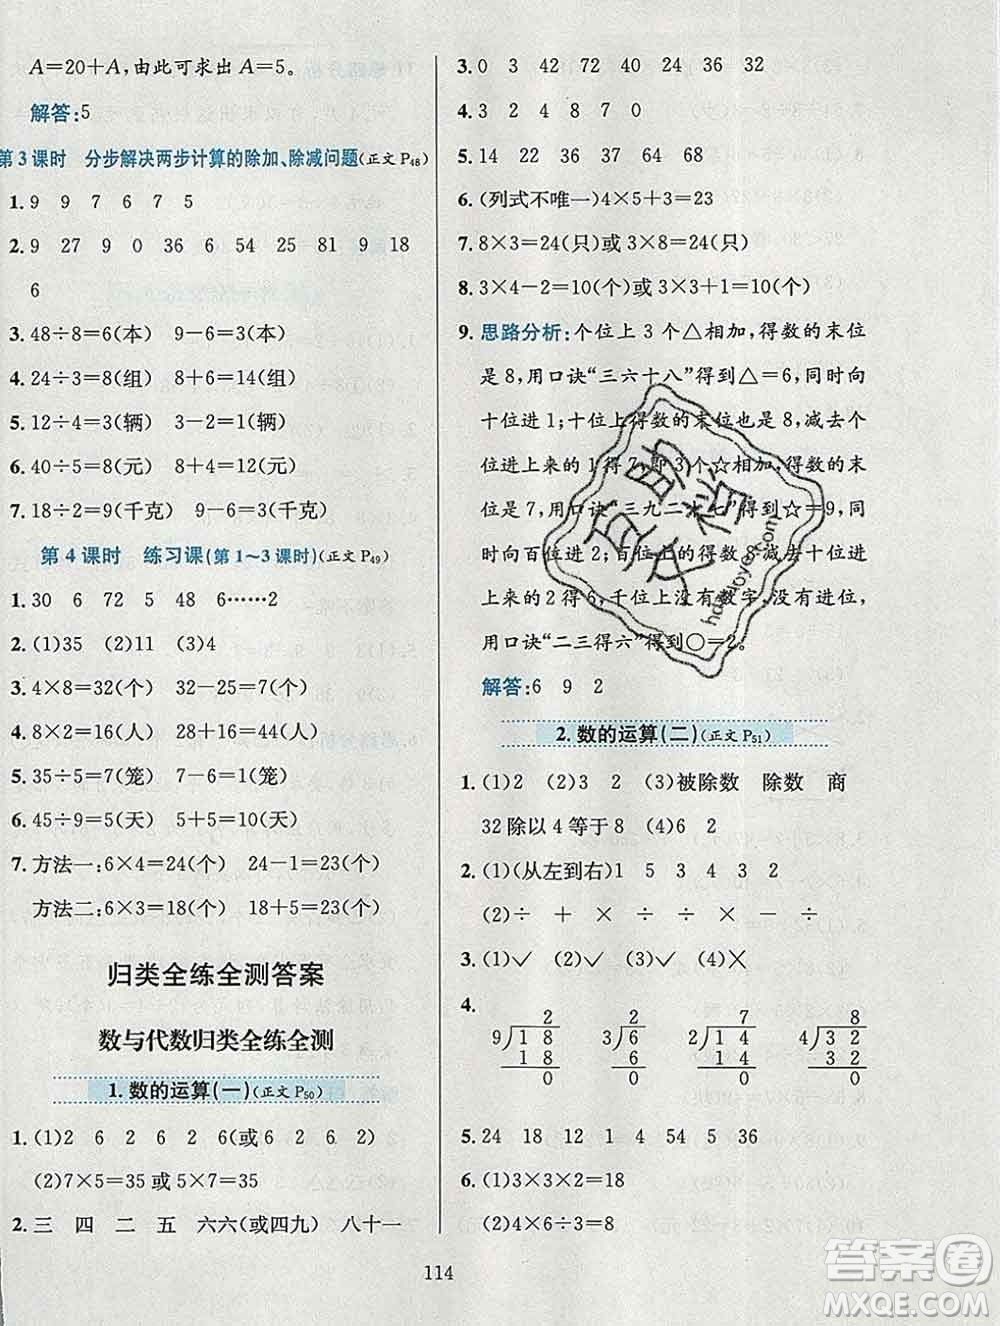 A＝20＋A，由此可求出A＝5。
解答：5
第3课时　分步解决两步计算的除加、除减问题（正文P48）
1. 9　9　7　6　7　5
2. 9　27　9　0　36　6　54　25　81　9　18
6
3. 48÷8＝6(本)　9－6＝3(本)
4. 24÷3＝8(组)　8＋6＝14(组)
5. 12÷4＝3(辆)　3－2＝1(辆)
6. 40÷5＝8(元)　8＋4＝12(元)
7. 18÷2＝9(千克)　9－6＝3(千克)
第4课时　练习课(第1～3课时)(正文P49)
1. 30　6　72　5　48　6……2
2. (1)35　(2)11　(3)4
3. 4×8＝32(个)　32－16＝16(个)
4. 8×2＝16(人)　28＋16＝44(人)
5. 35÷5＝7(笼)　7－6＝1(笼)
6. 45÷9＝5(天)　5＋5＝10(天)
7. 方法一：6×4＝24(个)　24－1＝23(个)
方法二：6×3＝18(个)　18＋5＝23(个)
归类全练全测答案
数与代数归类全练全测
1. 数的运算(一)(正文P50)
1. (1)2　6　2　6　2　6(或6　2　6　2)
(2)7×5＝35或5×7＝35
2. 三　四　二　五　六六(或四九)　八十一
3. 0　3　42　72　40　24　36　32
4. 3　2　4　8　7　0
5. 14　22　68　36　64　56
6. (列式不唯一)4×5＋3＝23
7. 8×3＝24(只)或3×8＝24(只)
8. 3×4－2＝10(个)或3×3＋1＝10(个)
9. 思路分析：个位上3个△相加，得数的末位
是8，用口诀“三六十八”得到△＝6，同时向
十位进1；十位上得数的末位也是8，减去个
位进上来的1得7，即3个☆相加，得数的末
位是7，用口诀“三九二十七”得到☆＝9，同
时向百位进2；百位上的得数是8，减去十位
进上来的2得6，千位上没有数字，没有进位，
用口诀“二三得六”得到○＝2。
解答：6　9　2
2. 数的运算(二)(正文P51)
1. (1)2　(2)3　2　(3)被除数　除数　商
32除以4等于8　(4)6　2
2. (1)(从左到右)1　5　3　4　3　2
(2)÷　＋　×　－　×　－　÷
3. (1)✓　(2)✓　(3)✓　(4)×
4.
2　2　7　8
9)18　3)6　2)14　4)32
18　6　14　32
0　0　0　0
5. 24　18　12　1　4　54　5　36
6. (1)3×3×2＝18
(2)4×6÷3＝8
114
互助文档
hdzuoyewen
答案圈
MXQE.COM